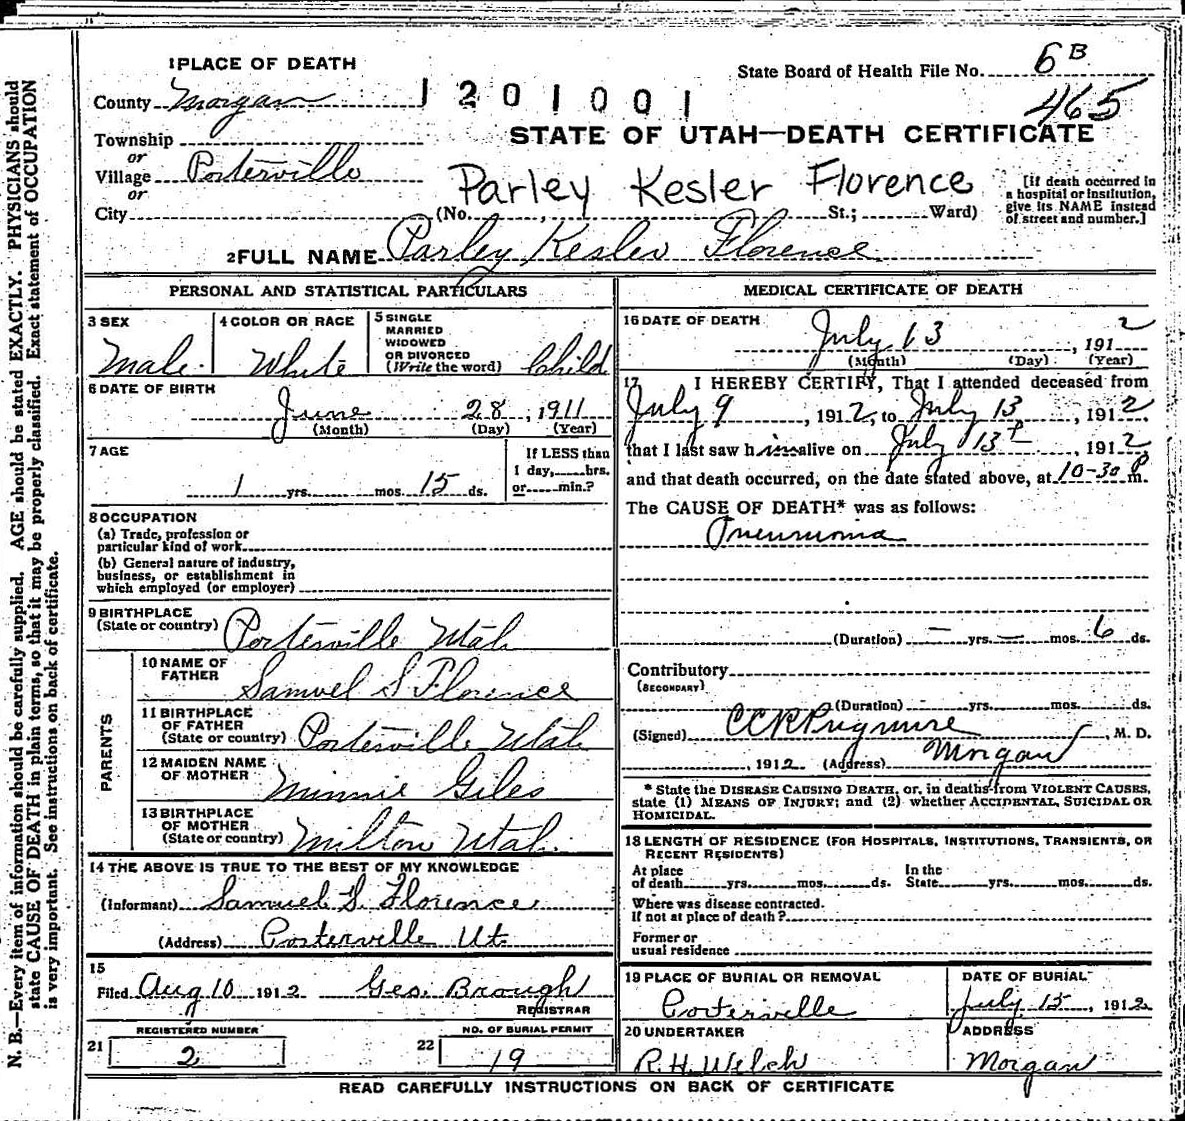 1 PLACE OF DEATH
County Morgan
1201001
State Board of Health File No. 6 B
465
Township
or
Village Porterville
or
City
STATE OF UTAH—DEATH CERTIFICATE
Parley Kesler Florence
(No. , St.; Ward)
[If death occurred in
a hospital or institution,
give its NAME instead
of street and number.]
2 FULL NAME Parley Kesler Florence
PERSONAL AND STATISTICAL PARTICULARS
3 SEX
Male
4 COLOR OR RACE
White
5 SINGLE
MARRIED
WIDOWED
OR DIVORCED
(Write the word) Child
6 DATE OF BIRTH
June 28, 1911
(Month) (Day) (Year)
7 AGE
1 yrs. mos. 15 ds.
If LESS than
1 day, hrs.
or min.?
8 OCCUPATION
(a) Trade, profession or
particular kind of work
(b) General nature of industry,
business, or establishment in
which employed (or employer)
9 BIRTHPLACE
(State or country) Porterville Utah
PARENTS
10 NAME OF
FATHER Samuel S Florence
11 BIRTHPLACE
OF FATHER
(State or country) Porterville Utah
12 MAIDEN NAME
OF MOTHER Minnie Giles
13 BIRTHPLACE
OF MOTHER
(State or country) Milton Utah
14 THE ABOVE IS TRUE TO THE BEST OF MY KNOWLEDGE
(Informant) Samuel S. Florence
(Address) Porterville Ut.
15
Filed Aug 10 1912 Geo. Brough
REGISTRAR
REGISTERED NUMBER
21 2
NO. OF BURIAL PERMIT
22 19
MEDICAL CERTIFICATE OF DEATH
16 DATE OF DEATH
July 13, 1912
(Month) (Day) (Year)
17 I HEREBY CERTIFY, That I attended deceased from
July 9, 1912, to July 13, 1912
that I last saw him alive on July 13th, 1912
and that death occurred, on the date stated above, at 10-30 P m.
The CAUSE OF DEATH* was as follows:
Pneumonia
(Duration) — yrs. — mos. 6 ds.
Contributory
(SECONDARY)
(Duration) - yrs. mos. ds.
(Signed) , M. D.
, 1912 (Address) Morgan
* State the DISEASE CAUSING DEATH, or, in deaths from VIOLENT CAUSES,
state (1) MEANS OF INJURY; and (2) whether ACCIDENTAL, SUICIDAL OR
HOMICIDAL.
18 LENGTH OF RESIDENCE (FOR HOSPITALS, INSTITUTIONS, TRANSIENTS, OR
RECENT RESIDENTS)
At place
of death yrs. mos. ds.
In the
State yrs. mos. ds.
Where was disease contracted.
If not at place of death?
Former or
usual residence
19 PLACE OF BURIAL OR REMOVAL
Porterville
DATE OF BURIAL
July 15, 1912
20 UNDERTAKER
R. H. Welch
ADDRESS
Morgan
READ CAREFULLY INSTRUCTIONS ON BACK OF CERTIFICATE
N. B.—Every item of information should be carefully supplied. AGE should be stated EXACTLY. PHYSICIANS should
state CAUSE OF DEATH in plain terms, so that it may be properly classified. Exact statement of OCCUPATION
is very important. See instructions on back of certificate.